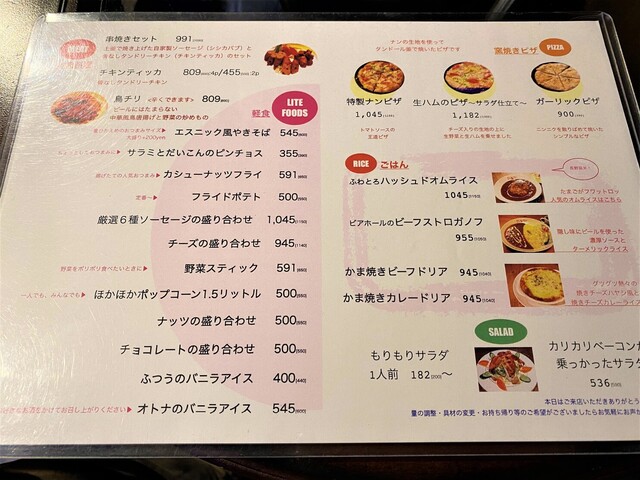 串焼きセット 991
上段で焼き上げた自家製ソーセージ（シシカバブ）と
骨なしタンドリーチキン（チキンティッカ）のセット
チキンティッカ 809 4p/455 2p
骨なしタンドリーチキン
鳥チリ <辛くできます> 809
ビールにはたまらない
中華風鳥唐揚げと野菜の炒めもの
軽食 LITE FOODS
大盛り+200yen
エスニック風やきそば 545(600)
サラミとだいこんのピンチョス 355(390)
揚げたての人気おつまみ▶ カシューナッツフライ 591(650)
定番〜▶ フライドポテト 500(550)
厳選6種ソーセージの盛り合わせ 1,045(1150)
チーズの盛り合わせ 945(1040)
野菜をポリポリ食べたいときに▶ 野菜スティック 591(650)
一人でも、みんなでも▶ ほかほかポップコーン1.5リットル 500(550)
ナッツの盛り合わせ 500(550)
チョコレートの盛り合わせ 500(550)
ふつうのバニラアイス 400(440)
お酒をかけてお召し上がりください▶ オトナのバニラアイス 545(600)
ナンの生地を使って
タンドール釜で焼いたピザです
窯焼きピザ PIZZA
特製ナンピザ
1,045(1150)
トマトソースの
王道ピザ
生ハムのピザ〜サラダ仕立て〜
1,182(1300)
チーズ入りの生地の上に
生野菜と生ハムを乗せました
ガーリックピザ
900(990)
ニンニクを散りばめて焼いた
シンプルなピザ
RICE ごはん
ふわとろハッシュドオムライス
1045(1150)
たまごがフワットロッ
人気のオムライスはこちら
ビアホールのビーフストロガノフ
955(1050)
隠し味にビールを使った
濃厚ソースと
ターメリックライス
かま焼きビーフドリア 945(1040)
かま焼きカレードリア 945(1040)
グツグツ熱々の
焼きチーズハヤシ風と
焼きチーズカレーライス
SALAD
もりもりサラダ
1人前 182(200)〜
カリカリベーコンが
乗っかったサラダ
536(590)
本日はご来店いただきありがとう
量の調整・具材の変更・お持ち帰り等のご希望がございましたらお気軽にお声